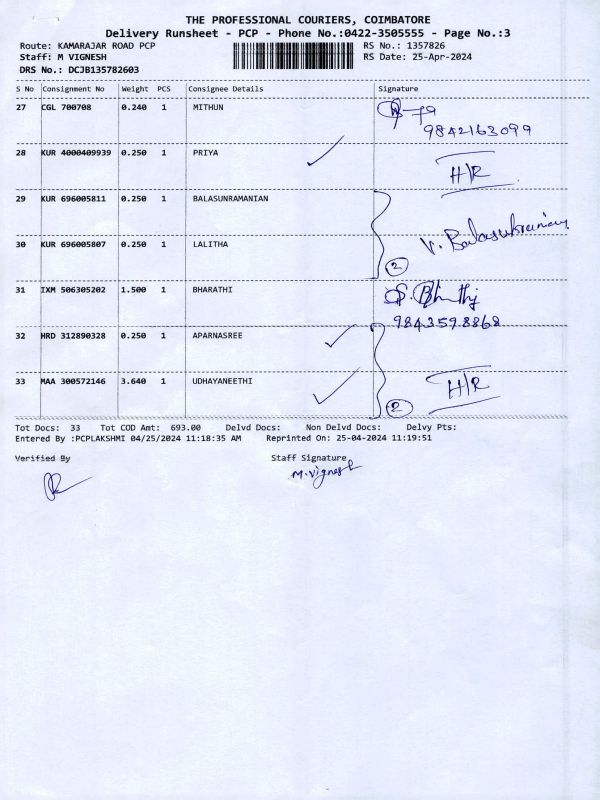 THE PROFESSIONAL COURIERS, COIMBATORE
Delivery Runsheet - PCP - Phone No.:0422-3505555 - Page No.:3
Route: KAMARAJAR ROAD PCP RS No.: 1357826
Staff: M VIGNESH RS Date: 25-Apr-2024
DRS No.: DCJB135782603
S No Consignment No Weight PCS Consignee Details Signature
27 CGL 700708 0.240 1 MITHUN
9842163099
28 KUR 4000409939 0.250 1 PRIYA H/R
29 KUR 696005811 0.250 1 BALASUNRAMANIAN
V. Balasubramaniam
30 KUR 696005807 0.250 1 LALITHA 2
31 IXM 506305202 1.500 1 BHARATHI
9843598868
32 HRD 312890328 0.250 1 APARNASREE
33 MAA 300572146 3.640 1 UDHAYANEETHI H/R
2
Tot Docs: 33 Tot COD Amt: 693.00 Delvd Docs: Non Delvd Docs: Delvy Pts:
Entered By :PCPLAKSHMI 04/25/2024 11:18:35 AM Reprinted On: 25-04-2024 11:19:51
Verified By Staff Signature
M. Vignesh